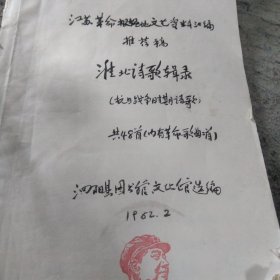 江苏革命根据地文艺资料汇编
推荐稿
淮北诗歌辑录
(抗日战争时期诗歌)
共48首(内有革命歌曲 首)
泗阳县图书馆 文化馆选编
1962.2